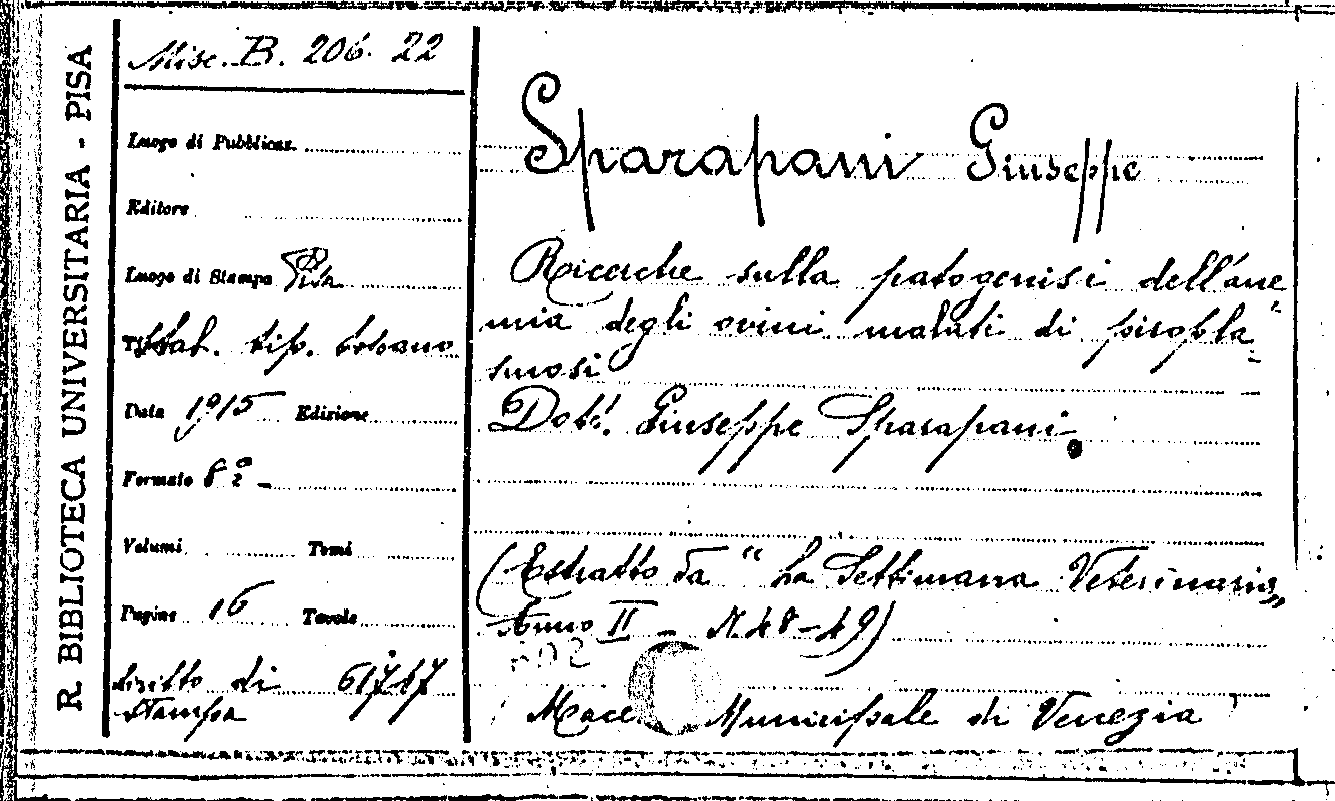 R. BIBLIOTECA UNIVERSITARIA - PISA
Misc. B. 206. 22
Luogo di Pubblicaz.
Editore
Luogo di Stampa Pisa
Stab. tip.
Data 1915 Edizione
Formato 8º
Volumi Tomi
Pagine 16 Tavole
diritto di
stampa
Sparapani Giuseppe
Ricerche sulla patogenisi dell'ane
mia degli ovini malati di piropla
smosi
Dott. Giuseppe Sparapani.
(Estratto da "La Settimana Veterinaria„
Anno II - N. 48-49)
Municipale di Venezia